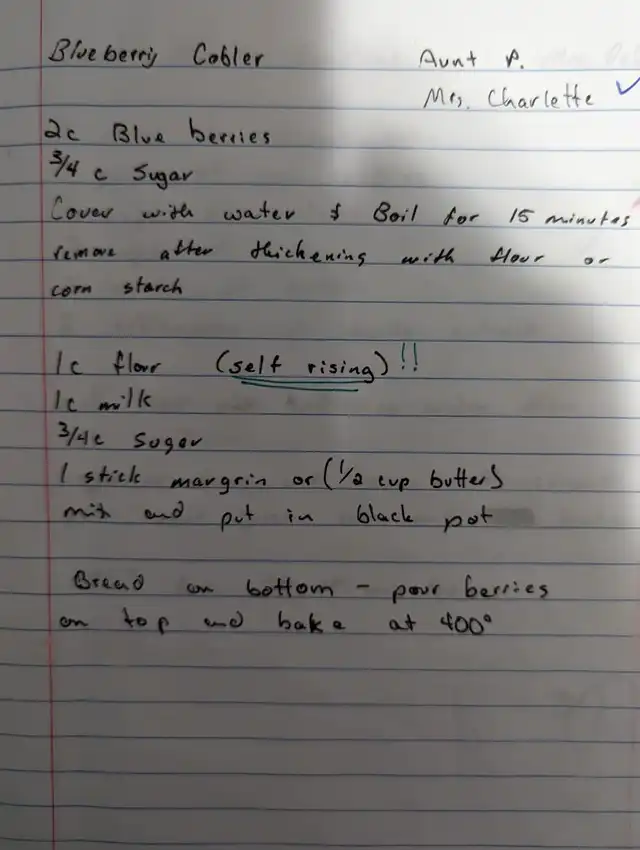 Blueberry Cobler
Aunt P.
Mrs. Charlette ✓
2c Blue berries
3/4 c Sugar
Cover with water & Boil for 15 minutes
remove after thickening with flour or
corn starch
1c flour (self rising)!!
1c milk
3/4c Sugar
1 stick margrin or (1/2 cup butter)
mix and put in black pot
Bread on bottom - pour berries
on top and bake at 400°